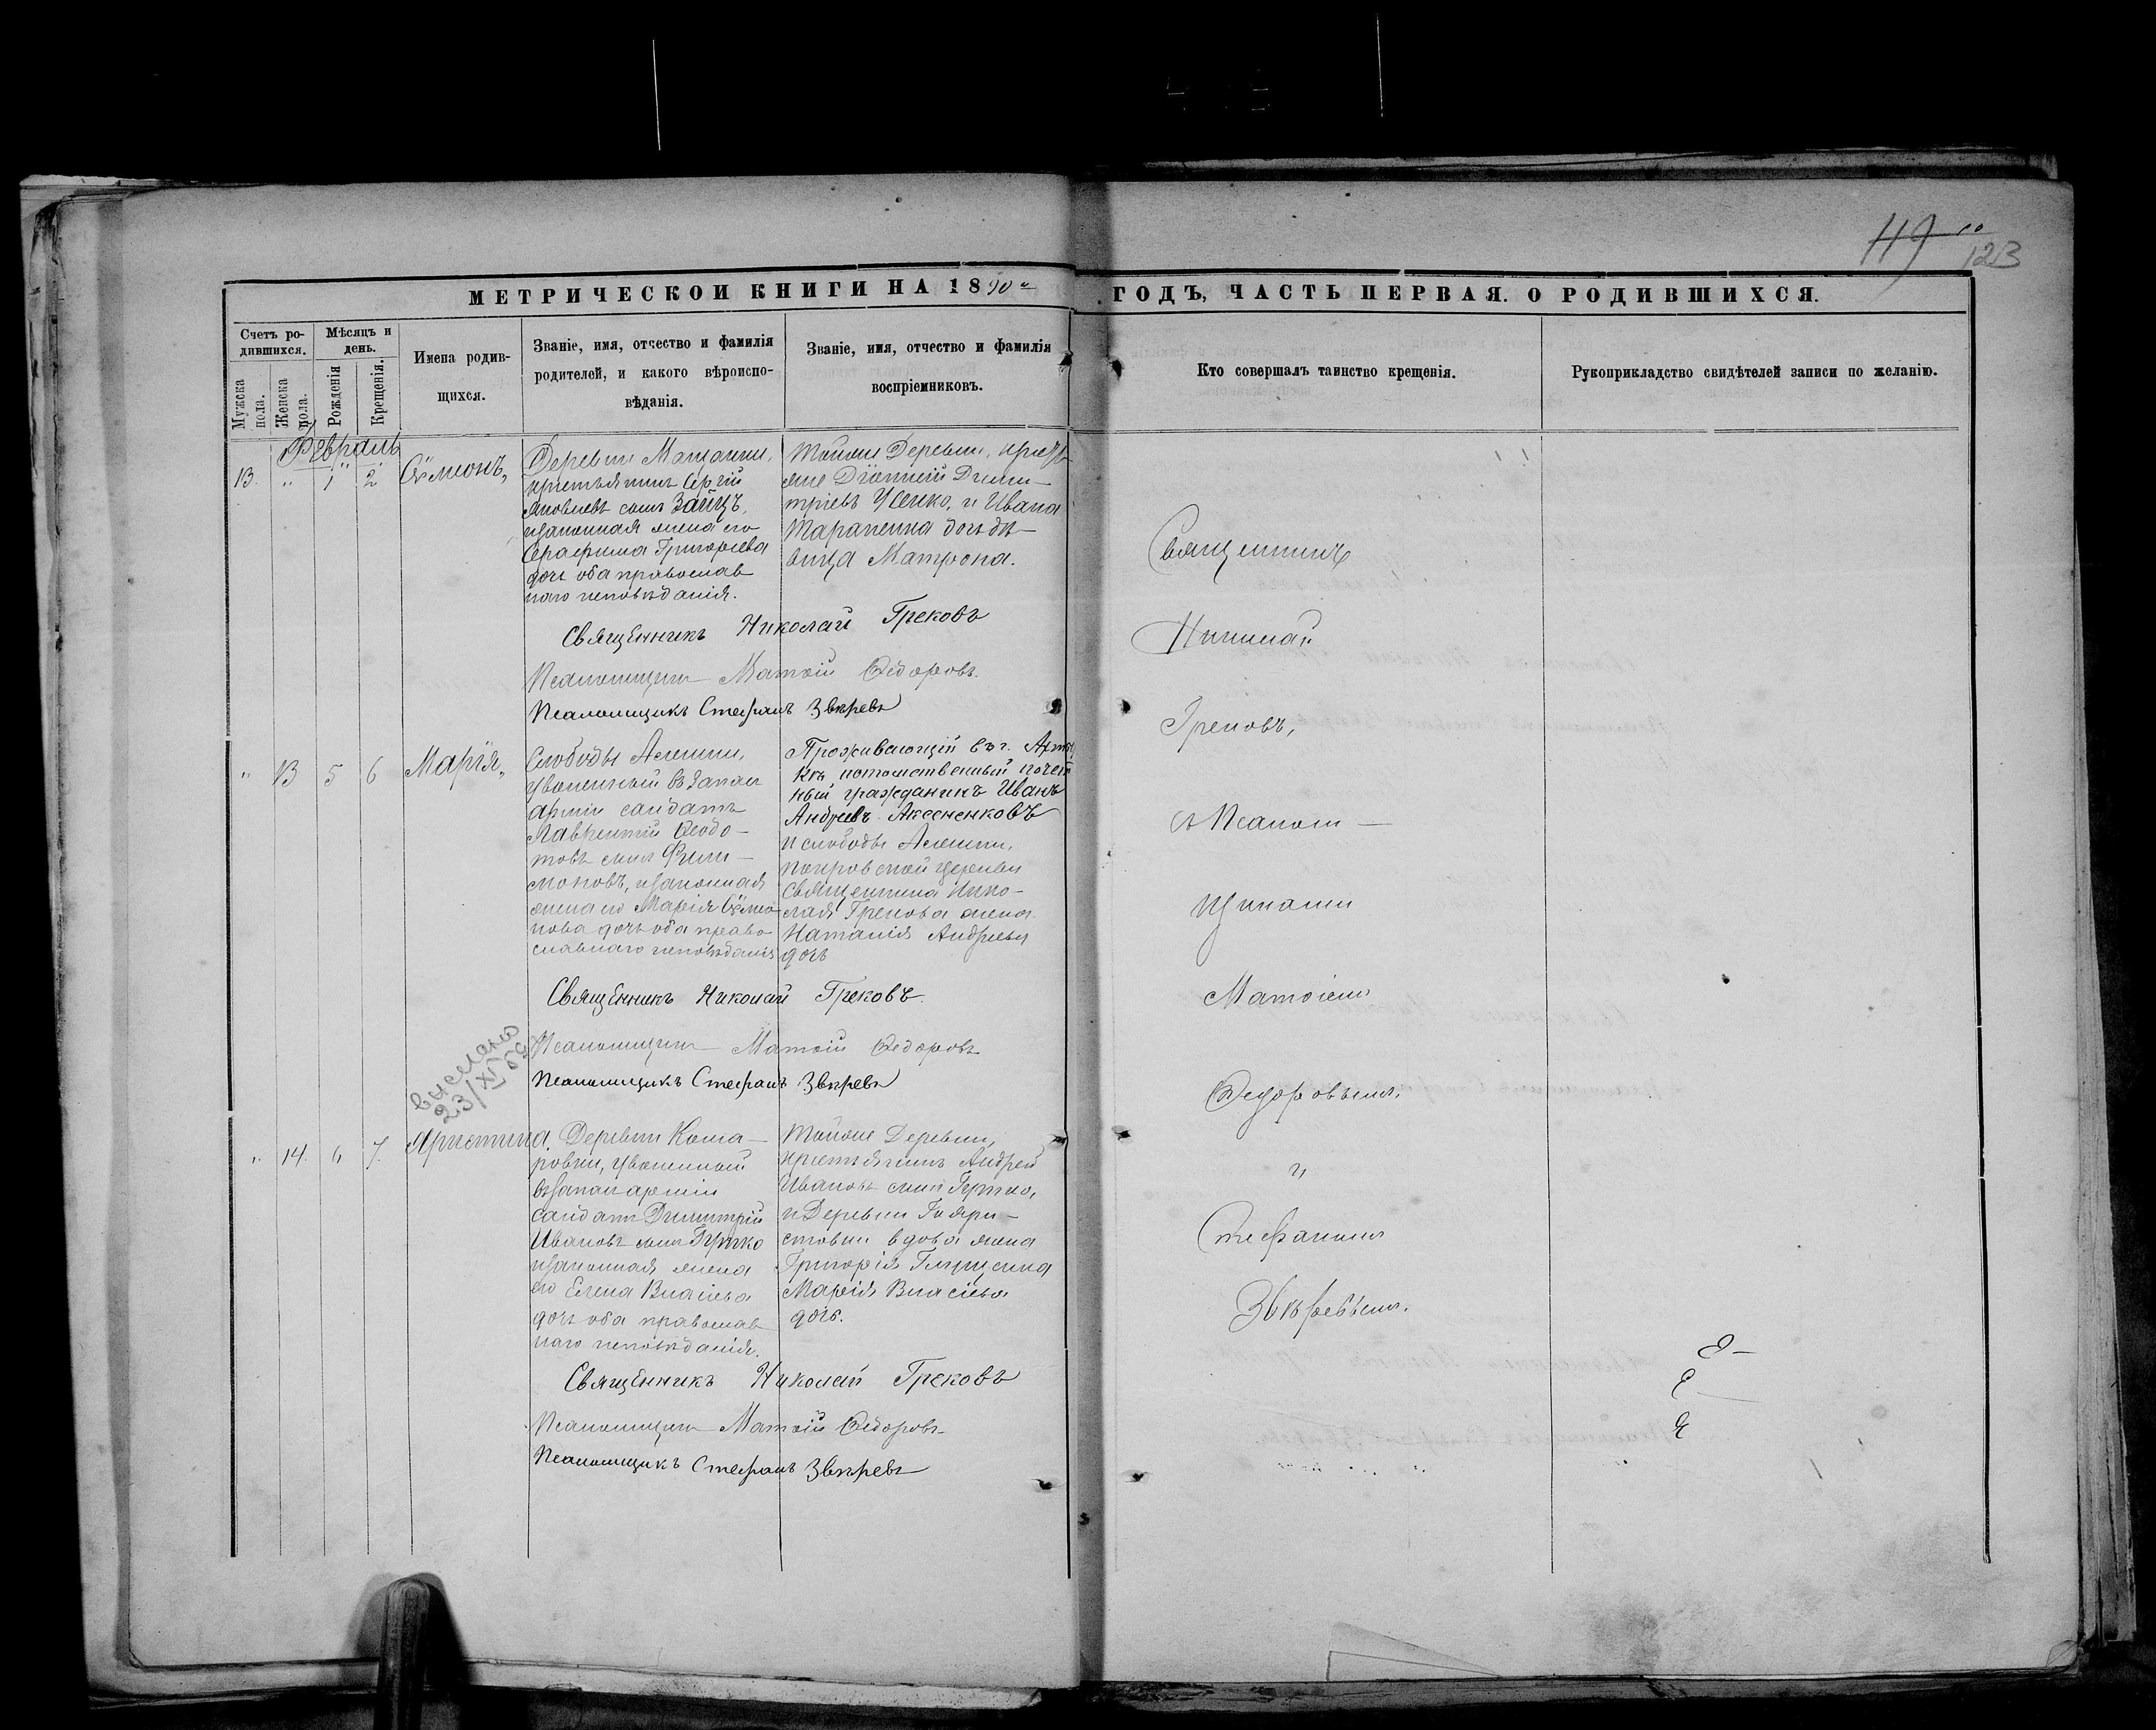 119
123
МЕТРИЧЕСКОЙ КНИГИ НА 1890 ГОДЪ, ЧАСТЬ ПЕРВАЯ. О РОДИВШИХСЯ.
Счетъ родившихся.
Мужеска пола.
Женска пола.
Мѣсяцъ и день.
Рожденія
Крещенія.
Имена родившихся.
Званіе, имя, отчество и фамилія родителей, и какого вѣроисповѣданія.
Званіе, имя, отчество и фамилія воспріемниковъ.
Кто совершалъ таинство крещенія.
Рукоприкладство свидѣтелей записи по желанію.
Февраль
13. " 1 2 Сѵмеонъ,
Деревни
крестьянинъ Сергій
Яковлевъ сынъ Заицъ,
и законная жена его
Серафима Григорьева
дочь оба православ
наго исповѣданія.
Тойже Деревни, крестья
не Діонисій Дими-
тріевъ Усенко, и Ивана
Тарапенка дочь дѣ-
вица Матрона.
Священникъ Николай Грековъ
Псаломщикъ Матѳій Ѳедоровъ.
Псаломщикъ Стефанъ Звѣревъ
" 13 5 6 Марія,
Слободы
уволенный въ запасъ
арміи солдатъ
Лаврентій Ѳеодо-
товъ сынъ Фили-
моновъ, и законная
жена его Марія Сѵмео
нова дочь оба право
славнаго исповѣданія
Проживающій въ г.
потомственный почет
ный гражданинъ Иванъ
Андреевъ Аксененковъ
и слободы
Покровской церкви
Священника Нико-
лая Грекова жена
Наталія Андреева
дочь
Священникъ Николай Грековъ.
Псаломщикъ Матѳій Ѳедоровъ
Псаломщикъ Стефанъ Звѣревъ
выслано
23/XI 59
" 14. 6 7. Христина
Деревни Кома-
ровки, уволенный
въ запасъ арміи
солдатъ Димитрій
Ивановъ сынъ
и законная жена
его Елена Власіева
дочь оба православ
наго исповѣданія.
Тойже Деревни,
крестьянинъ Андрей
Ивановъ сынъ
и Деревни
вдова жена
Григорія
Марія Власіева
дочь.
Священникъ Николай Грековъ
Псаломщикъ Матѳій Ѳедоровъ
Псаломщикъ Стефанъ Звѣревъ
Священникъ
Николай
Грековъ,
съ Псалом-
щиками
Матѳіемъ
Ѳедоровымъ,
и
Стефаномъ
Звѣревымъ.